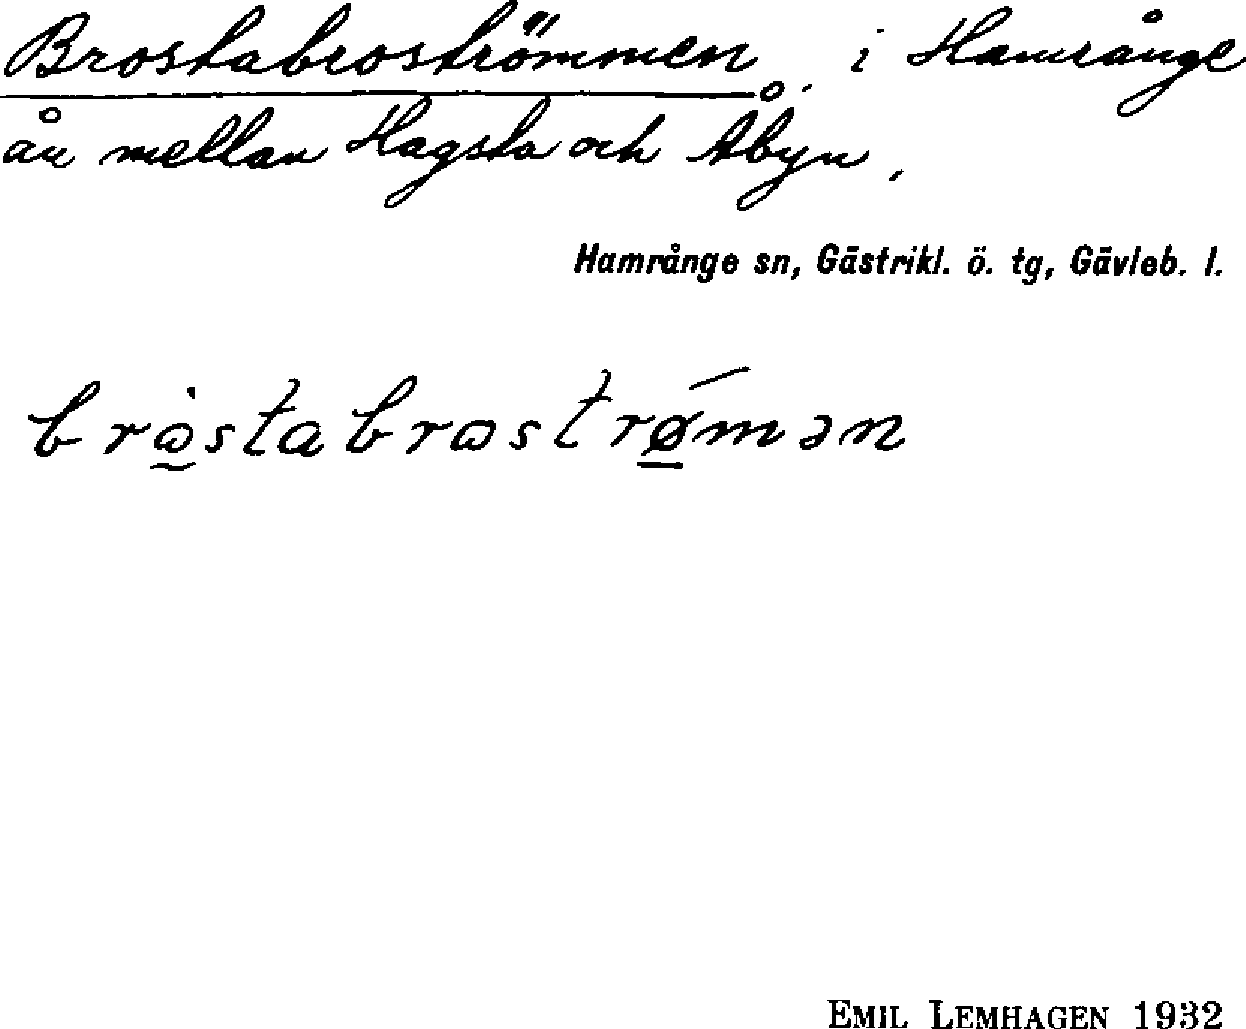 Brostabroströmmen i Hamrånge
ån mellan Hagsta och Åbyn.
Hamrånge sn, Gästrikl. ö. tg, Gävleb. l.
brɷ̀stabrɷstrǿmən
EMIL LEMHAGEN 1932